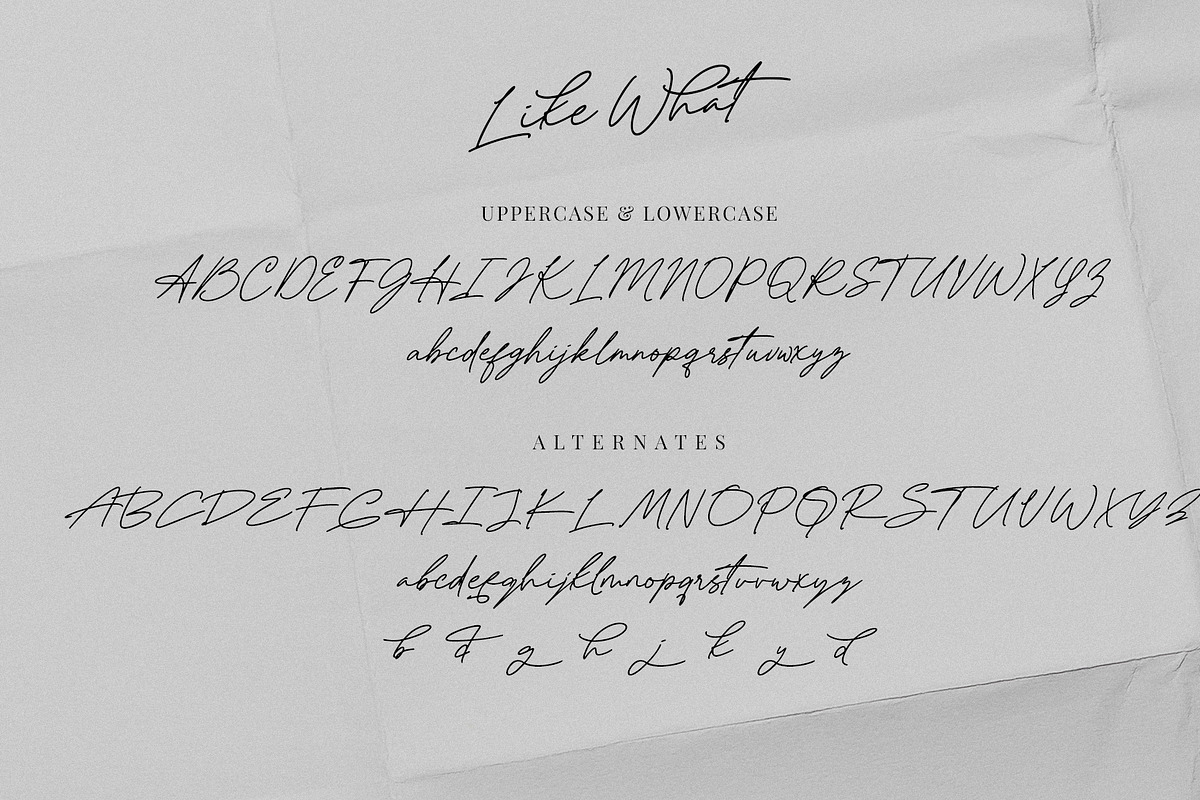 Like What
UPPERCASE & LOWERCASE
ABCDEFGHIJKLMNOPQRSTUVWXYZ
abcdefghijklmnopqrstuvwxyz
ALTERNATES
ABCDEFGHIJKLMNOPQRSTUVWXYZ
abcdefghijklmnopqrstuvwxyz
b d g h j k y d